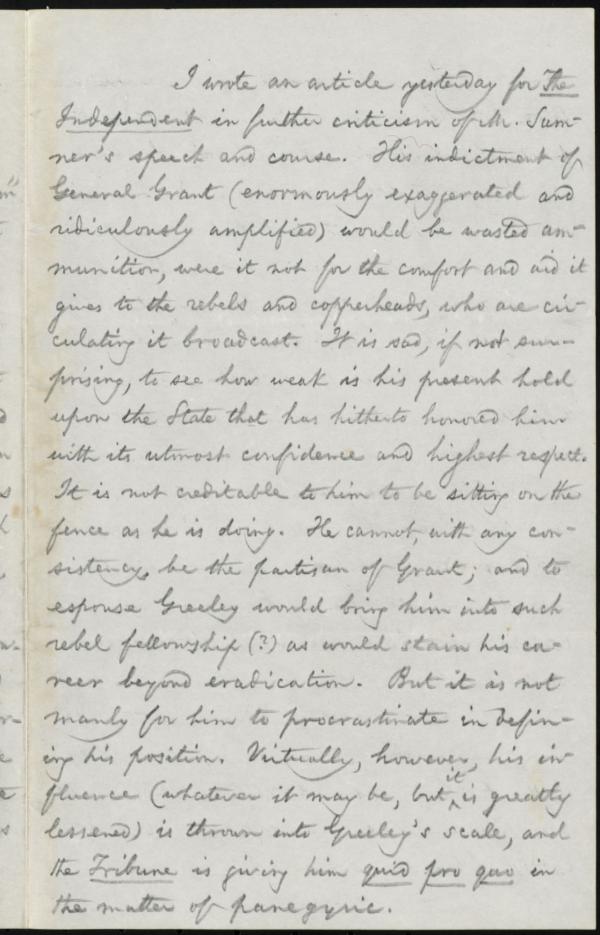 I wrote an article yesterday for The
Independent in further criticism of Mr. Sum-
ner's speech and course. His indictment of
General Grant (enormously exaggerated and
ridiculously amplified) would be wasted am-
munition, were it not for the comfort and aid it
gives to the rebels and copperheads, who are cir-
culating it broadcast. It is sad, if not sur-
prising, to see how weak is his present hold
upon the State that has hitherto honored him
with its utmost confidence and highest respect.
It is not creditable to him to be sitting on the
fence as he is doing. He cannot, with any con-
sistency, be the partisan of Grant; and to
espouse Greeley would bring him into such
rebel fellowship (?) as would stain his ca-
reer beyond eradication. But it is not
manly for him to procrastinate in defin-
ing his position. Virtually, however, his in-
fluence (whatever it may be, but it is greatly
lessened) is thrown into Greeley's scale, and
the Tribune is giving him quid pro quo in
the matter of panegyric.